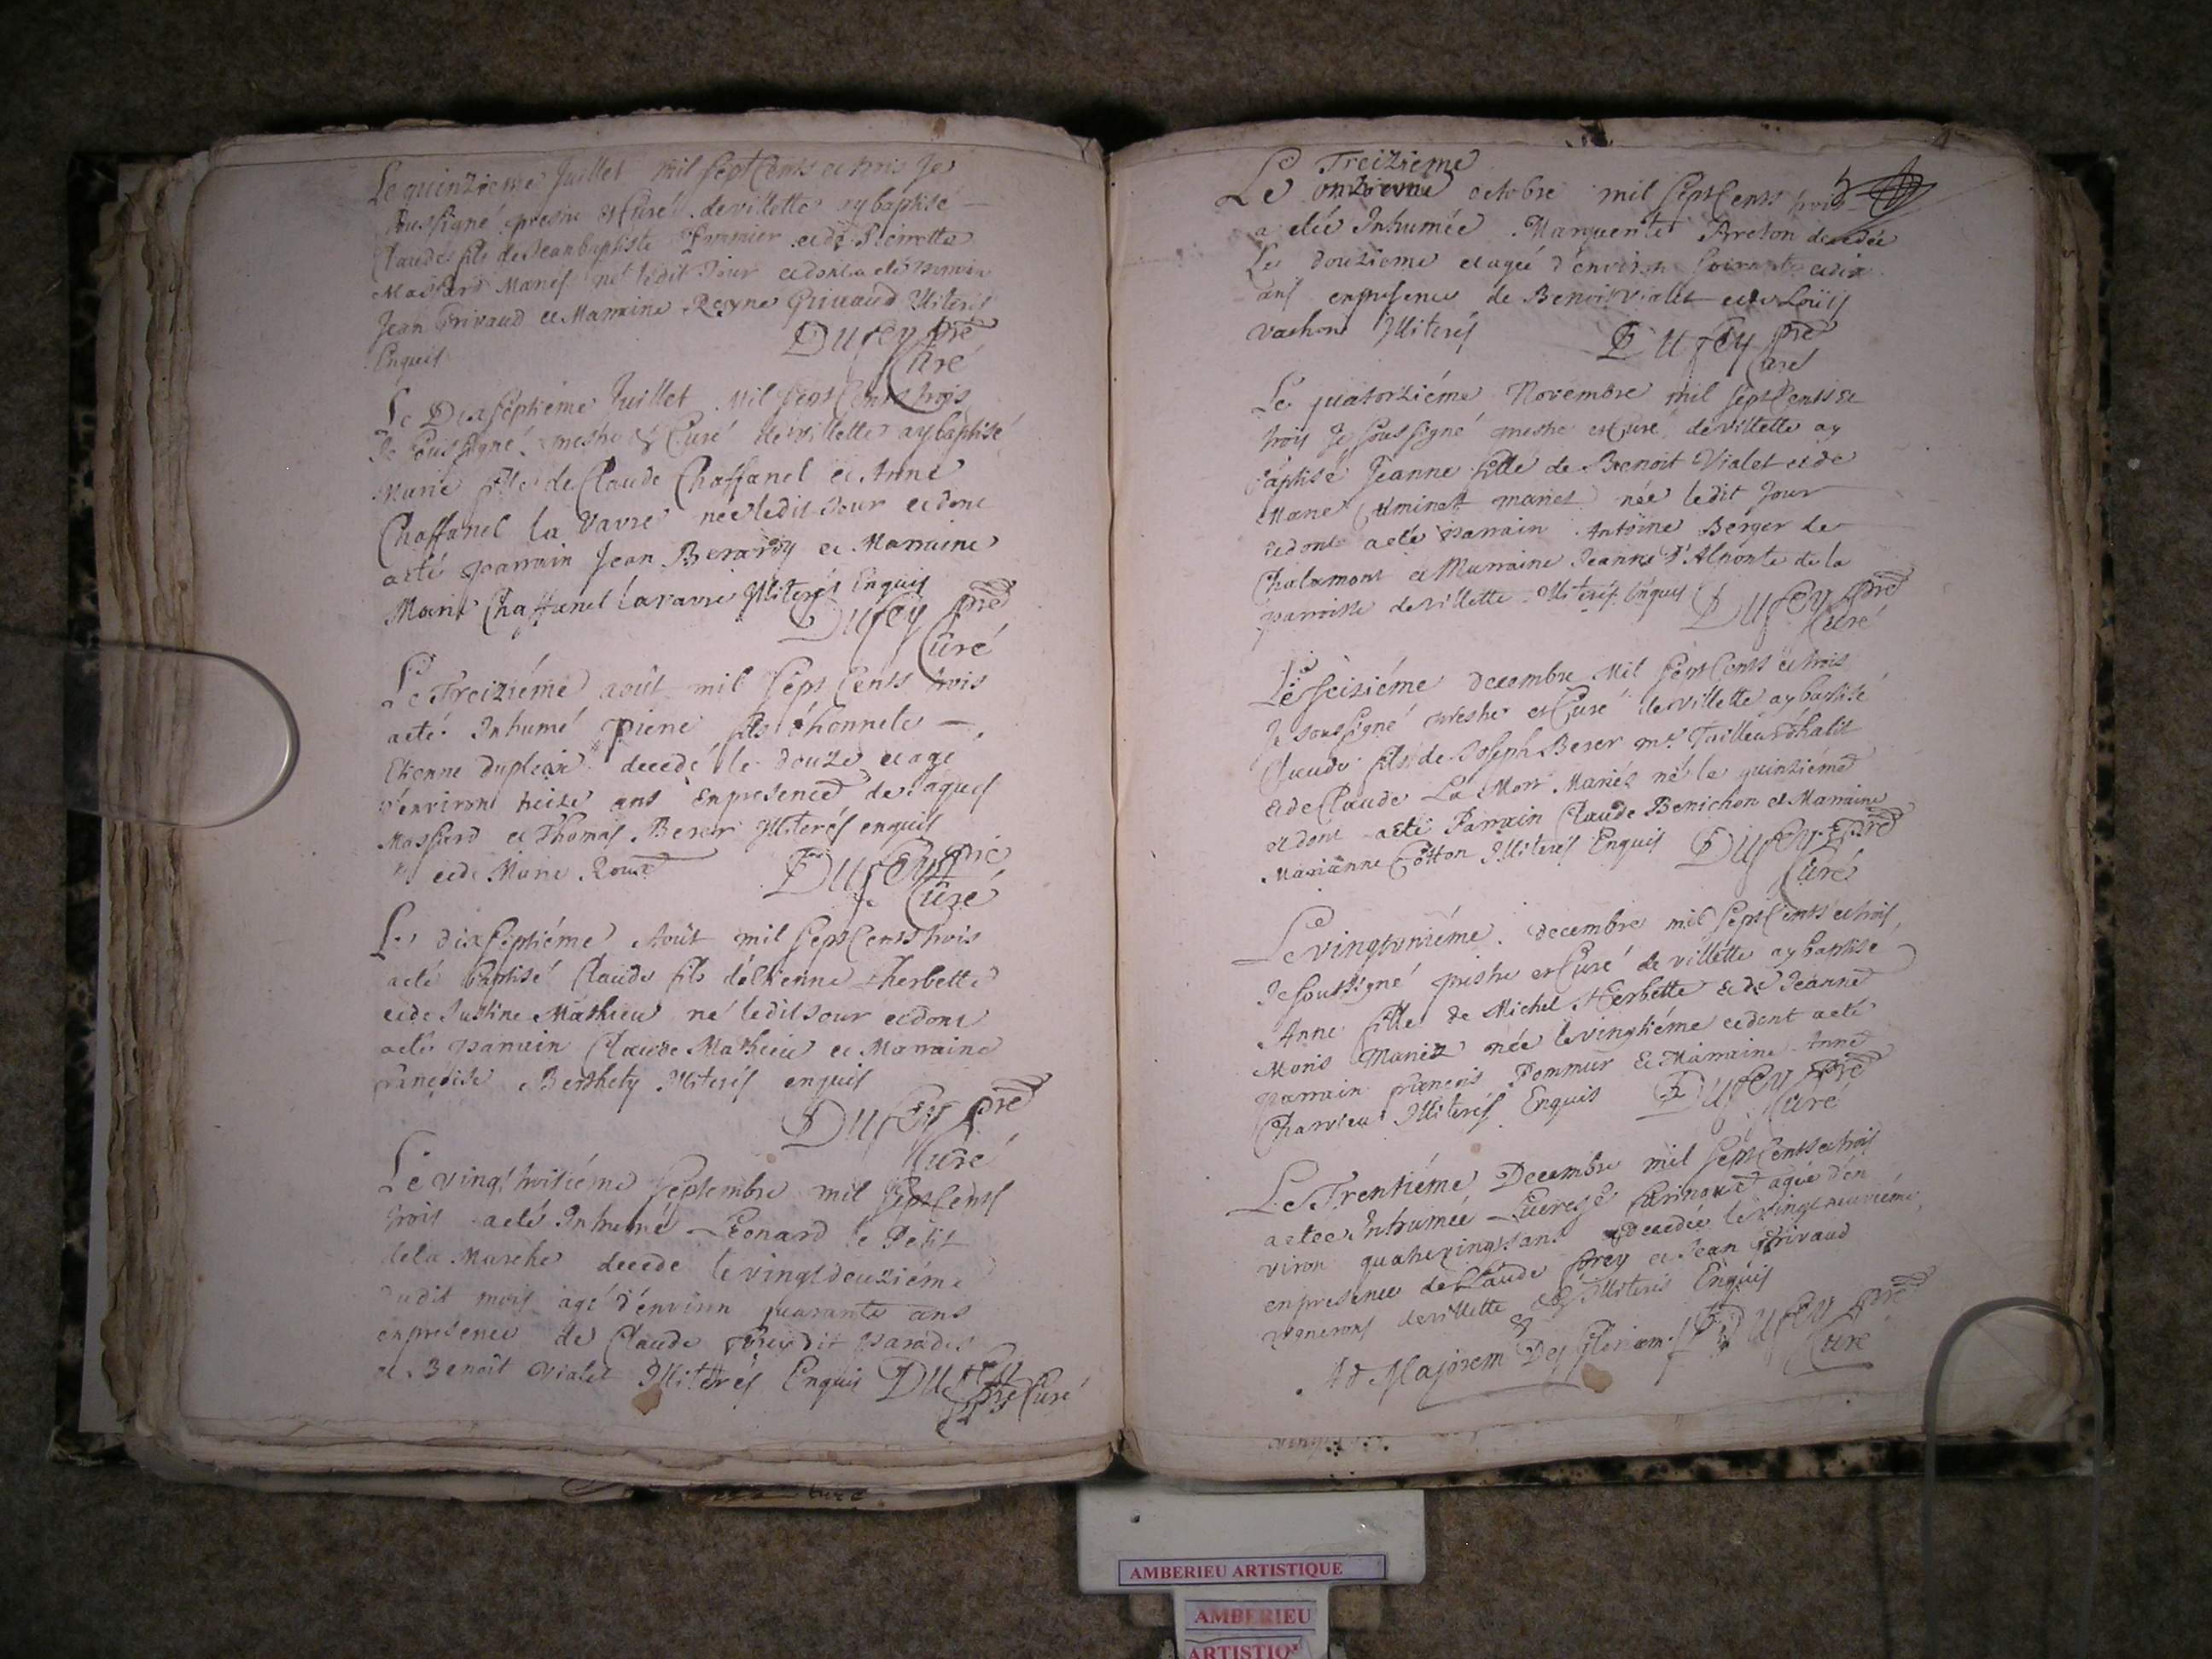 Le quinzieme Juillet mil sept Cents et trois Je
soussigné prestre et Curé de villette ay baptisé
Claude fils de Jean baptiste Pommier et de Pierrette
Massard Mariés né ledit Jour et dont a eté parrain
Jean Privaud et Marraine Reyne Privaud Illiterés
Enquis Dufey pre
Curé
Le Dixseptieme Juillet Mil sept Cents trois
Je soussigné prestre & Curé de villette ay baptisé
Marie fille de Claude Chaffanel et Anne
Chaffanel la Vavre née ledit Jour et dont
a eté parrain Jean Berardy et Marraine
Marie Chaffanel lavavre Illiterés Enquis
Dufey pre
Curé
Le Treiziéme août mil sept Cents trois
a eté Inhumé pierre fils d'honnete
Etienne dupleix " decedé le douze et agé
d'environ treize ans En presence de Jaques
Massard et Thomas Berer Illiterés enquis
" et de Marie Roux Dufey pre
Curé
Le dixseptiéme Août mil sept Cents trois
a eté baptisé Claude fils d'etienne herbette
et de Justine Mathieu né ledit Jour et dont
a eté parrain Claude Mathieu et Marraine
françoise Berthety Illiterés enquis
Dufey pre
Curé
Le vingt huitiéme Septembre mil sept Cents
trois a eté Inhumé Leonard le Petit
de la Marche decedé le vingtdeuziéme
dudit mois agé d'environ quarante ans
en presence de Claude dit paradis
et Benoît Vialet Illiterés Enquis Dufey
pre Curé
Treizieme
Le onzieme octobre mil sept Cents trois
a eté Inhumée Marguerite Breton decedée
Le douzieme et agée d'environ soixante et dix
ans en presence de Benoit Vialet et de Loüis
Vachon Illiterés Dufey pre
Curé
Le quatorziéme Novembre mil sept Cents et
trois Je soussigné prestre et Curé de villette ay
baptisé Jeanne fille de Benoit Vialet et de
Marie mariés née ledit Jour
et dont a eté parrain Antoine Berger de
Chalamont et Marraine Jeanne d'Alponte de la
parroisse de villette Illiterés Enquis Dufey pre
Curé
Le seiziéme decembre Mil sept Cents et trois
Je soussigné prestre et Curé de villette ay baptisé
Claude fils de Joseph Berer me Tailleur d'habit
et de Claude La Mor Mariés né le quinziéme
et dont a eté Parrain Claude Benichon et Marraine
Marianne Cotton Illiterés Enquis Dufey pre
Curé
Le vingtuniéme decembre mil sept Cents et trois
Je soussigné prestre et Curé de villette ay baptisé
Anne fille de Michel Herbette et de Jeanne
Moris Mariez née le vingtiéme et dont a eté
parrain françois Pommier & Marraine Anne
Charvieu Illiterés Enquis Dufey pre
Curé
Le Trentiéme Decembre mil sept Cents et trois
a eteé Inhumeé Lucresse agée d'en
viron quatre vingts ans Decedée le vingtneuviéme
en presence de Claude et Jean Privaud
vignerons de villette Illiterés Enquis
Ad Majorem Dei Gloriam Dufey pre
Curé
AMBERIEU ARTISTIQUE
AMBERIEU
ARTISTIQ